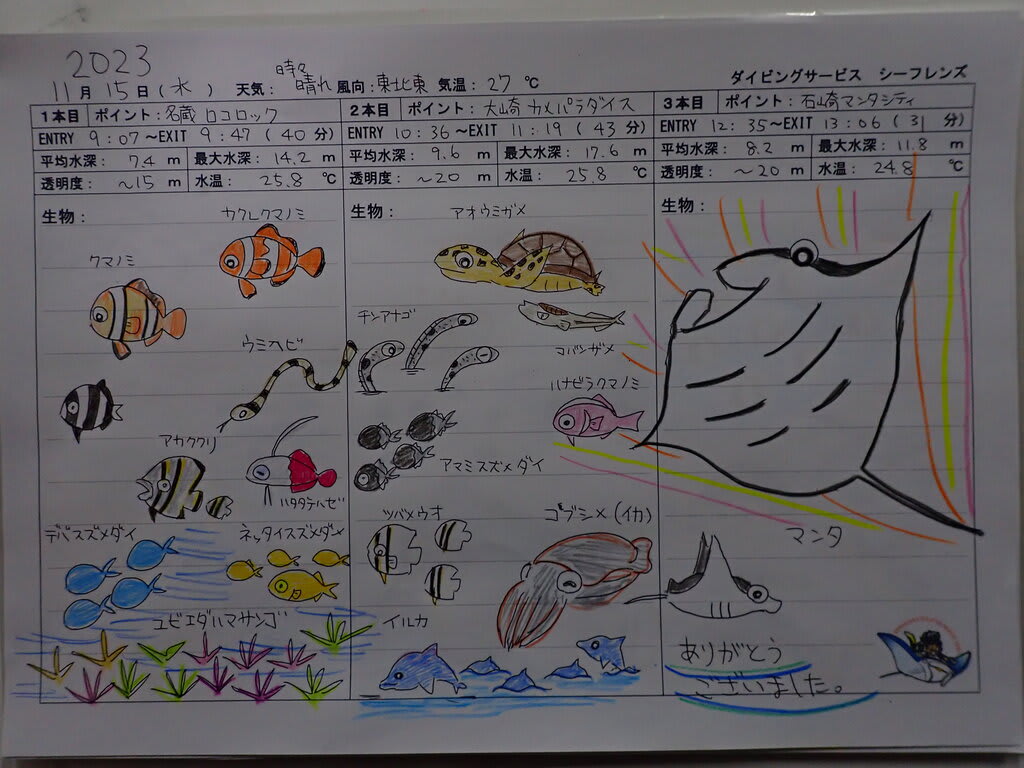 2023
11月 15日(水) 天気: 時々晴れ 風向: 東北東 気温: 27 ℃
ダイビングサービス シーフレンズ
1本目 ポイント: 名蔵 ロコロック
ENTRY 9:07 ~EXIT 9:47 (40 分)
平均水深: 7.4 m 最大水深: 14.2 m
透明度: ~15 m 水温: 25.8 ℃
生物:
カクレクマノミ
クマノミ
ウミヘビ
アカククリ
ハタタテハゼ
デバスズメダイ
ネッタイスズメダイ
ユビエダハマサンゴ
2本目 ポイント: 大崎 カメパラダイス
ENTRY 10:36 ~EXIT 11:19 (43 分)
平均水深: 9.6 m 最大水深: 17.6 m
透明度: ~20 m 水温: 25.8 ℃
生物:
アオウミガメ
チンアナゴ
コバンザメ
ハナビラクマノミ
アマミスズメダイ
ツバメウオ
コブシメ(イカ)
イルカ
3本目 ポイント: 石崎マンタシティ
ENTRY 12:35 ~EXIT 13:06 (31 分)
平均水深: 8.2 m 最大水深: 11.8 m
透明度: ~20 m 水温: 24.8 ℃
生物:
マンタ
ありがとう
ございました。